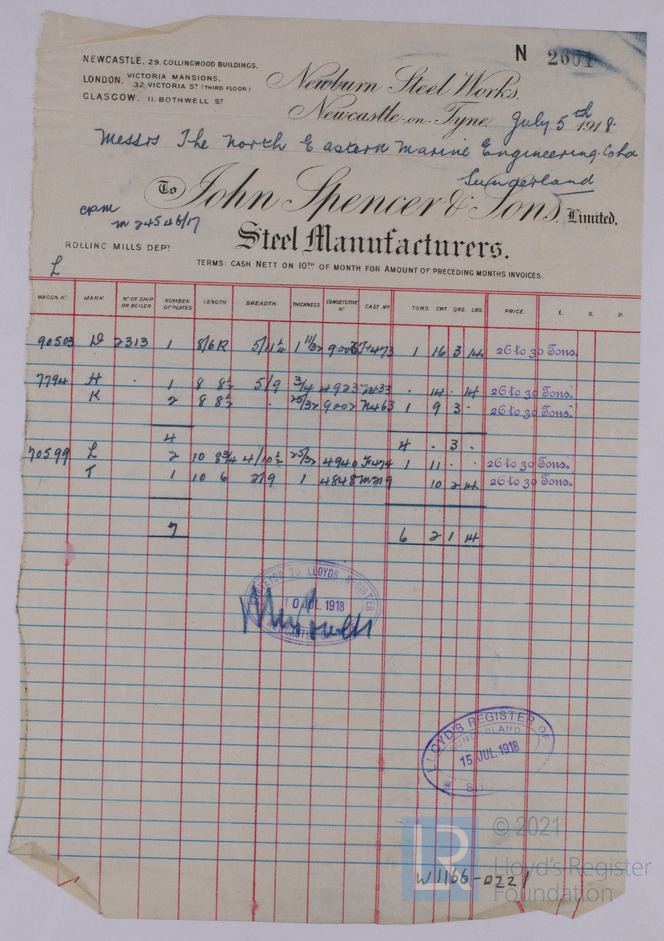 N 2601
NEWCASTLE, 29. COLLINGWOOD BUILDINGS.
LONDON, VICTORIA MANSIONS,
32 VICTORIA ST (THIRD FLOOR)
GLASGOW, 11. BOTHWELL ST
Newburn Steel Works,
Newcastle-on-Tyne, July 5th 1918
Messrs The North Eastern Marine Engineering Co Ld
Sunderland
To John Spencer & Sons, Limited.
Steel Manufacturers.
ROLLING MILLS DEPT
TERMS: CASH NETT ON 10TH OF MONTH FOR AMOUNT OF PRECEDING MONTHS INVOICES.
L
WAGON No MARK No OF SHIP OR BOILER NUMBER OF PLATES LENGTH BREADTH THICKNESS CONSECUTIVE No CAST No TONS. CWT. QRS. LBS. PRICE. £. S. D.
90503 D 2313 1 8/6R 5/11½ 1 11/32 1 16 3 14 26 to 30 Tons.
7794 H . 1 8 8½ 5/9 3/4 4923 . 14 . 14 26 to 30 Tons.
K 2 8 8½ . 25/32 9007 1 9 3 . 26 to 30 Tons.
4 4 . 3 .
70599 L 2 10 8¾ 4/10½ 25/32 4940 1 11 . . 26 to 30 Tons.
T 1 10 6 2/9 1 4848 10 2 14 26 to 30 Tons.
7 6 2 1 14
SURVEYOR TO LLOYDS REGISTER
10 JUL 1918
LLOYD'S REGISTER OF
SUNDERLAND
15 JUL 1918
© 2021
LR
Lloyd's Register
Foundation
W1166-0221